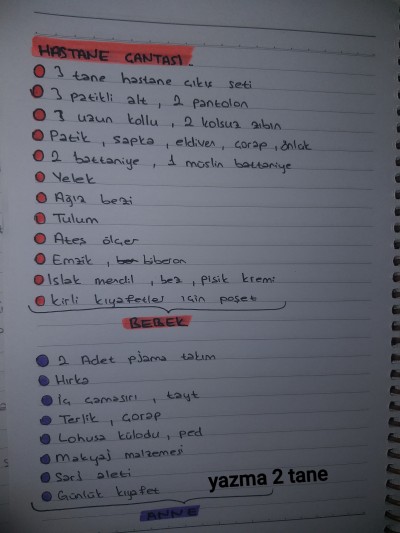 HASTANE ÇANTASI
3 tane hastane çıkış seti
3 patikli alt, 2 pantolon
3 uzun kollu, 2 kolsuz zıbın
Patik, şapka, eldiven, çorap, önlük
2 battaniye, 1 müslin battaniye
Yelek
Ağız bezi
Tulum
Ateş ölçer
Emzik, biberon
Islak mendil, bez, pişik kremi
Kirli kıyafetler için poşet
BEBEK
2 Adet pijama takım
Hırka
İç çamaşırı, tayt
Terlik, çorap
Lohusa külodu, ped
Makyaj malzemesi
Şarj aleti
Günlük kıyafet
yazma 2 tane
ANNE